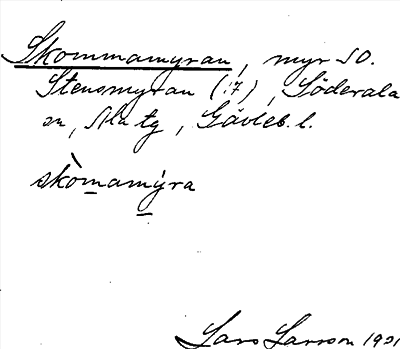 Skommamyran, myr SO.
Stensmyran (:7), Söderala
sn, Ala tg, Gävleb. l.
skòmamýra
Lars Larsson 1931